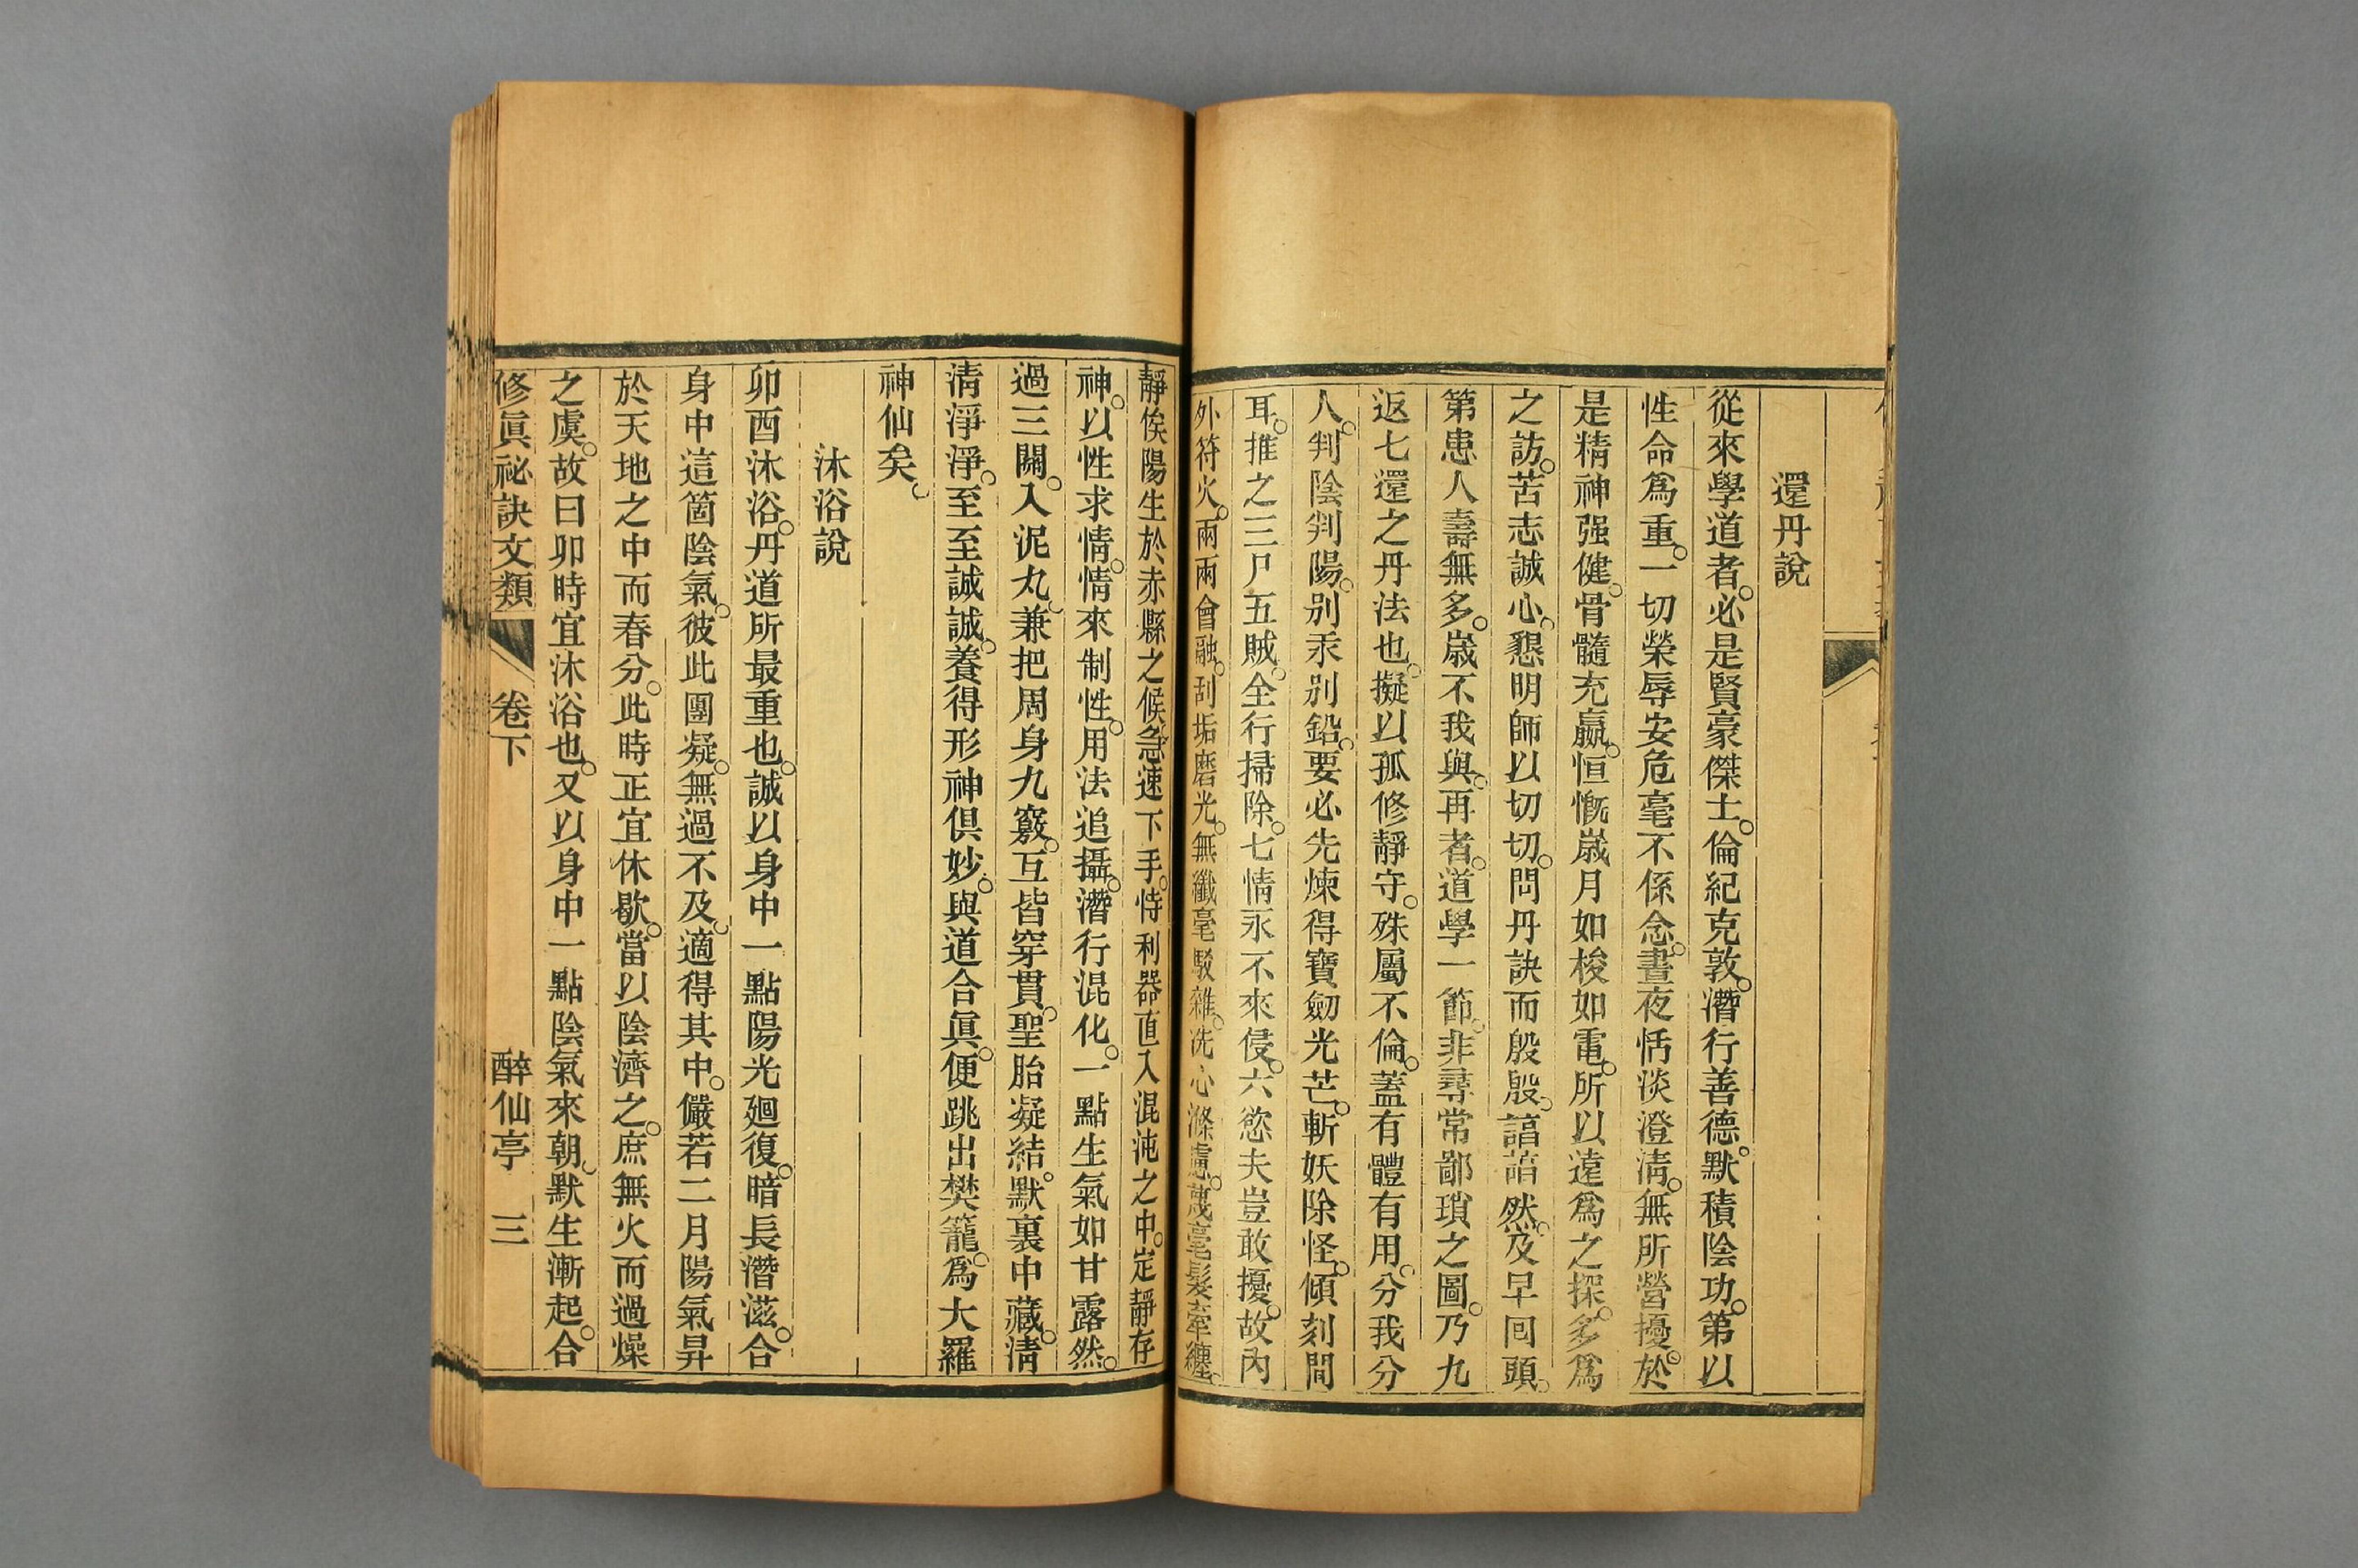 還丹說
從來學道者。必是賢豪傑士。倫紀克敦。潛行善德。默積陰功。第以
性命爲重。一切榮辱安危毫不係念。晝夜恬淡澄淸。無所營擾。於
是精神强健。骨髓充贏。恒慨歲月如梭如電。所以遠爲之探。多爲
之訪。苦志誠心。懇明師以切切。問丹訣而殷殷。諄諄然。及早回頭。
第患人壽無多。歲不我與。再者。道學一節。非尋常鄙瑣之圖。乃九
返七還之丹法也。擬以孤修靜守。殊屬不倫。蓋有體有用。分我分
人。判陰判陽。別汞別鉛。要必先煉得寶劒光芒。斬妖除怪。傾刻間
耳。推之三尸五賊。全行掃除。七情永不來侵。六慾夫豈敢擾。故內
外符火。兩兩會融。刮垢磨光。無纖毫駁雜。洗心滌慮。蔑毫髮牽纏。
靜俟陽生於赤縣之候。急速下手。恃利器直入混沌之中。定靜存
神。以性求情。情來制性。用法追攝。潛行混化。一點生氣如甘露然。
過三關。入泥丸。兼把周身九竅。互皆穿貫。聖胎凝結。默裏中藏。淸
淸淨淨。至至誠誠。養得形神俱妙。與道合眞。便跳出樊籠。爲大羅
神仙矣。
沐浴說
卯酉沐浴。丹道所最重也。誠以身中一點陽光廻復。暗長潛滋。合
身中這箇陰氣。彼此團凝。無過不及。適得其中。儼若二月陽氣昇
於天地之中而春分。此時正宜休歇。當以陰濟之。庶無火而過燥
之虞。故曰卯時宜沐浴也。又以身中一點陰氣來朝。默生漸起。合
修眞祕訣文類 卷下 醉仙亭 三